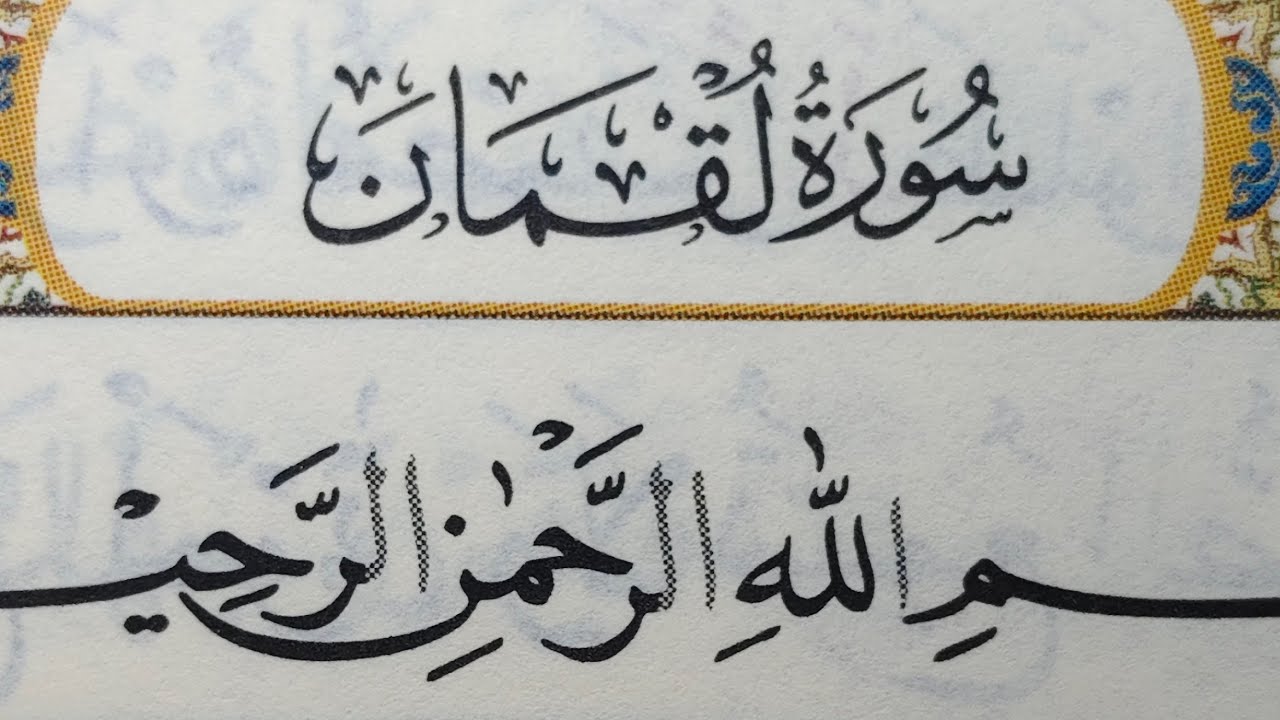 سُورَةُ لُقْمَانَ
ـسمِ اللّٰهِ الرَّحْمٰنِ الرَّحِيْـ